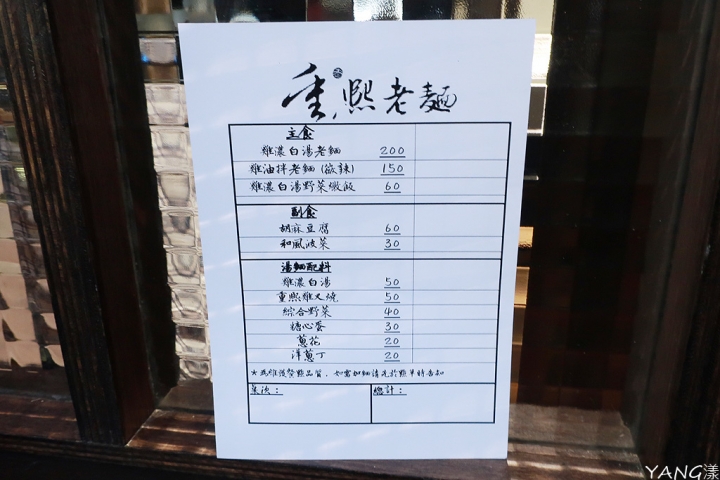 重熙老麵
主食
雞濃白湯老麵 200
雞油拌老麵(微辣) 150
雞濃白湯野菜嫩飯 60
副食
胡麻豆腐 60
和風波菜 30
湯麵配料
雞濃白湯 50
重熙雞叉燒 50
綜合野菜 40
糖心蛋 30
蔥花 20
洋蔥丁 20
*為維護餐點品質,如需加麵請先於點單時告知
桌次: 總計:
YANG漾